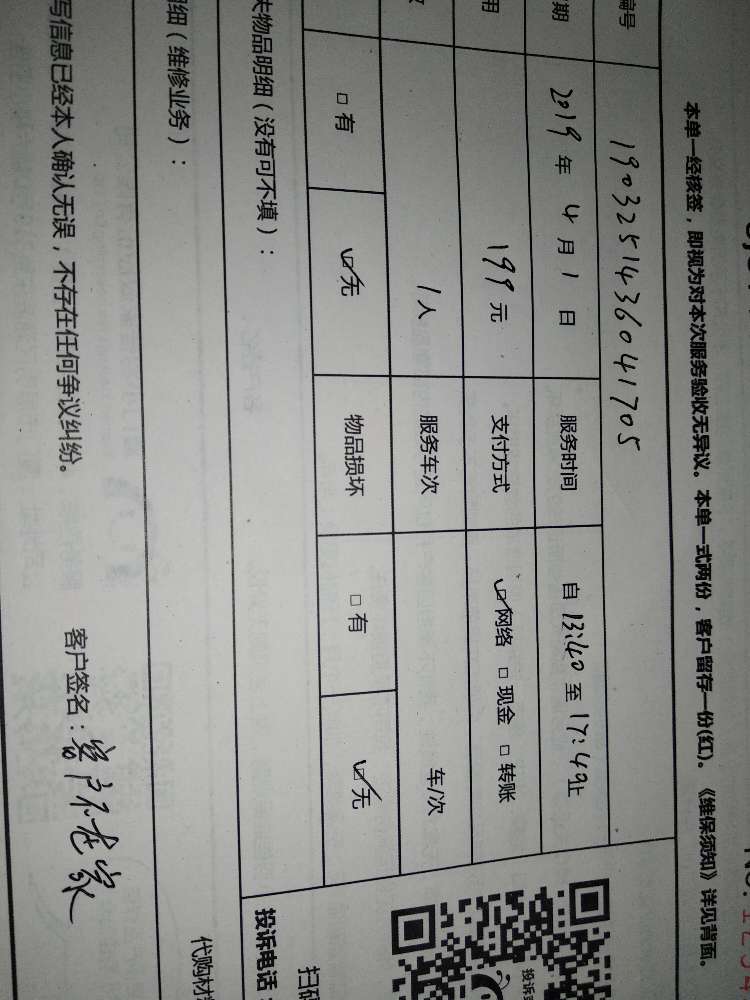 本单一经核签，即视为对本次服务验收无异议。本单一式两份，客户留存一份(红)。《维保须知》详见背面。
编号 1903251436041705
期 2019年4月1日 服务时间 自13:40至17:49止
用 199元 支付方式 ☑网络 □现金 □转账
1人 服务车次 车/次
□有 ☑无 物品损坏 □有 ☑无
失物品明细（没有可不填）：
投诉电话：
细（维修业务）：
代购材
写信息已经本人确认无误，不存在任何争议纠纷。 客户签名：客户不在家
扫码
投诉